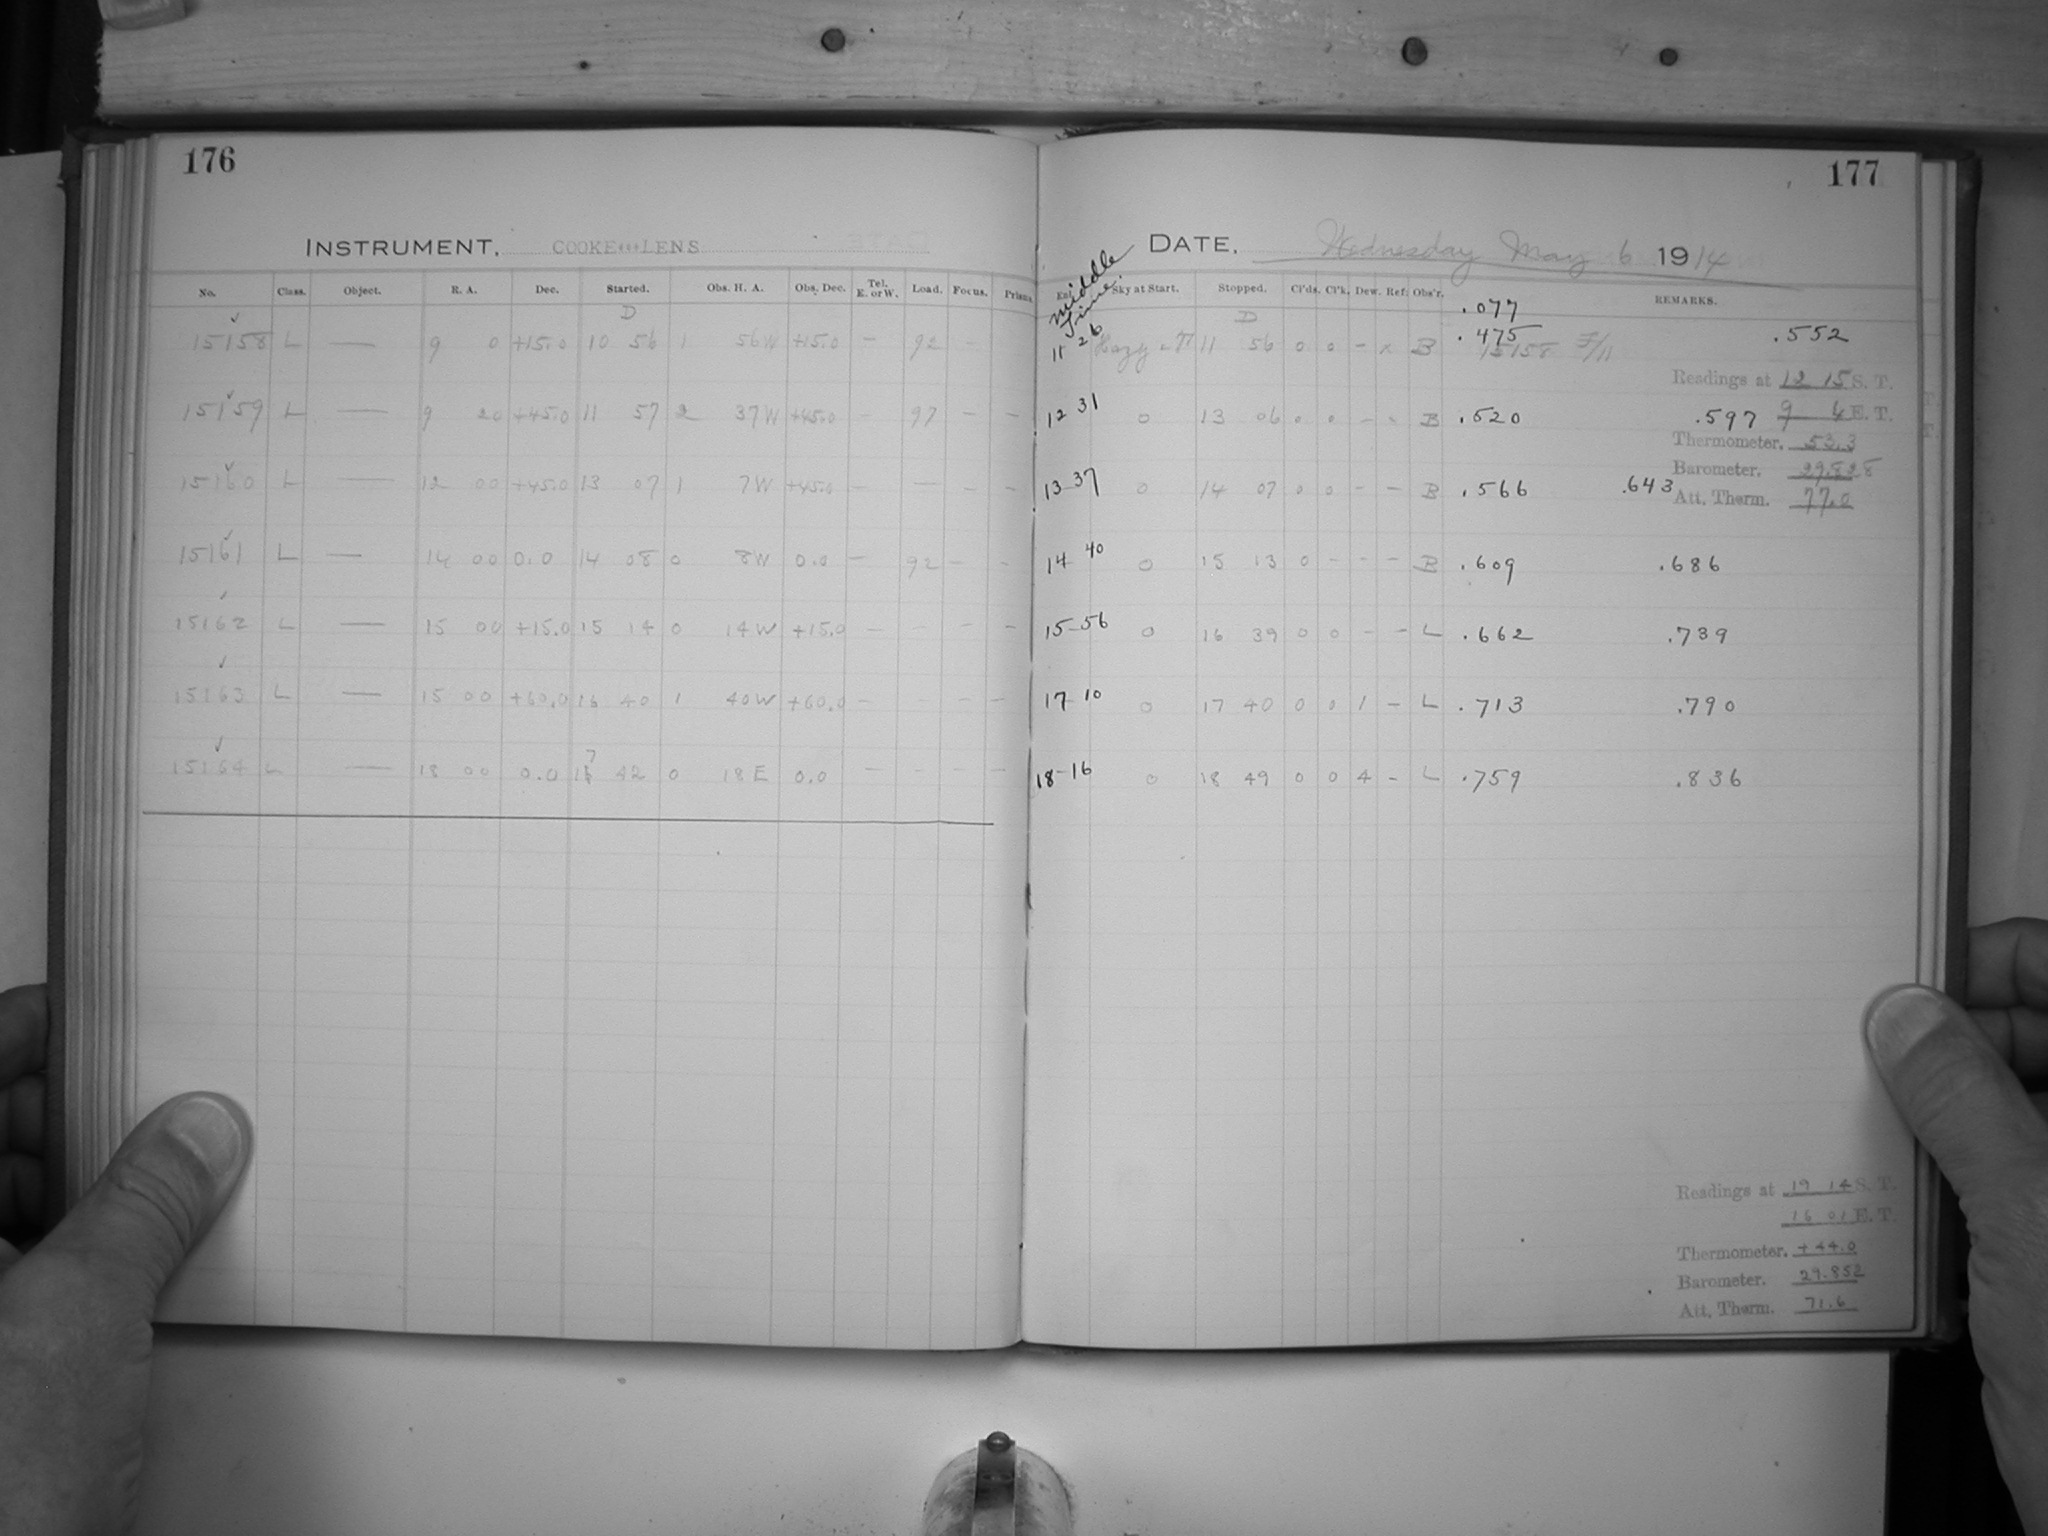 176
INSTRUMENT, COOKE LENS
No. Class. Object. R. A. Dec. Started. Obs. H. A. Obs. Dec. Tel. E. or W. Load. Focus. Prisms.
D
15158 L — 9 0 +15.0 10 56 1 56W +15.0 — 92 —
15159 L — 9 20 +45.0 11 57 2 37W +45.0 — 97 — —
15160 L — 12 00 +45.0 13 07 1 7W +45.0 — — — —
15161 L — 14 00 0.0 14 08 0 8W 0.0 — 92 — —
15162 L — 15 00 +15.0 15 14 0 14W +15.0 — — — —
15163 L — 15 00 +60.0 16 40 1 40W +60.0 — — — —
7
15164 L — 18 00 0.0 16 42 0 18E 0.0 — — — —
177
DATE. Wednesday May 6 1914
middle Time.
Sky at Start. Stopped. Cl'ds. Cl'k. Dew. Ref. Obs'r. REMARKS.
.077
D
11 26 Hazy 11 56 0 0 - x B .475 .552
15158 F/11
Readings at 12 15 S. T.
12 31 0 13 06 0 0 - x B .520 .597 9 4 E. T.
Thermometer. 53.3
Barometer. 29.828
13-37 0 14 07 0 0 - - B .566 .643 Att. Therm. 77.0
14 40 0 15 13 0 - - - B .609 .686
15-56 0 16 39 0 0 - - L .662 .739
17-10 0 17 40 0 0 1 - L .713 .790
18-16 0 18 49 0 0 4 - L .759 .836
Readings at 19 14 S. T.
16 01 E. T.
Thermometer. +44.0
Barometer. 29.852
Att. Therm. 71.6